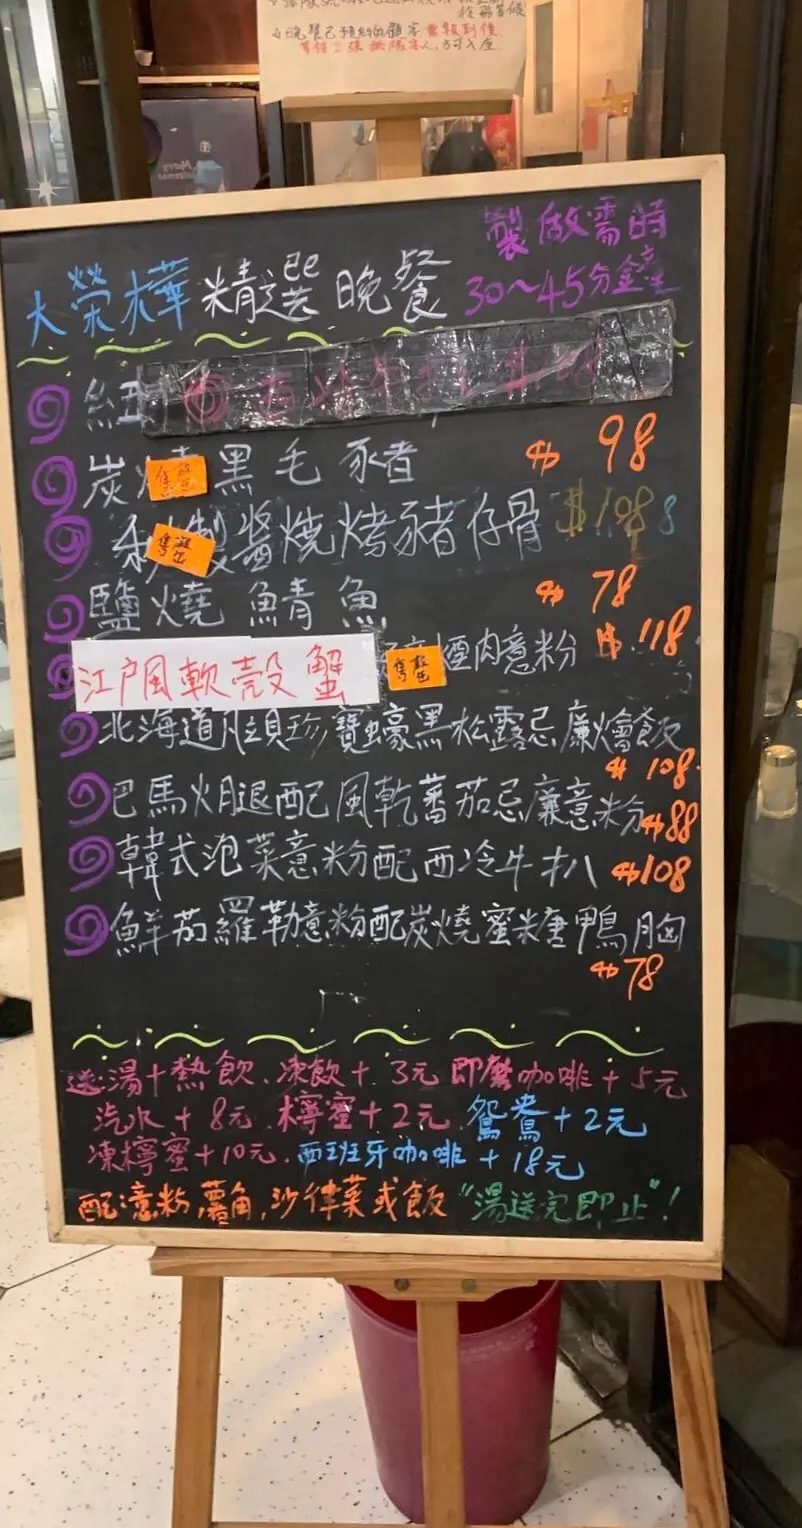 晚餐已預約的顧客需報到後
製做需時
大榮華 精選 晚餐
30~45分鐘
$108
炭 黑毛豬 $98
售罄
秘製醬燒烤豬仔骨 $108
售罄
鹽燒鯖魚 $78
江戶風軟殼蟹 煙肉意粉 $118
售罄
北海道 珍寶蠔黑松露忌廉燴飯
$108
巴馬火腿配風乾蕃茄忌廉意粉 $88
韓式泡菜意粉配西冷牛扒 $108
鮮茄羅勒意粉配炭燒蜜糖鴨胸
$78
送湯+熱飲、凍飲+3元 即磨咖啡+5元
汽水+8元、檸蜜+2元、鴛鴦+2元
凍檸蜜+10元、西班牙咖啡+18元
配意粉,薯角,沙律菜或飯 "湯送完即止"!